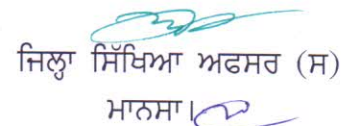 ਜਿਲ੍ਹਾ ਸਿੱਖਿਆ ਅਫਸਰ (ਸ)
ਮਾਨਸਾ।